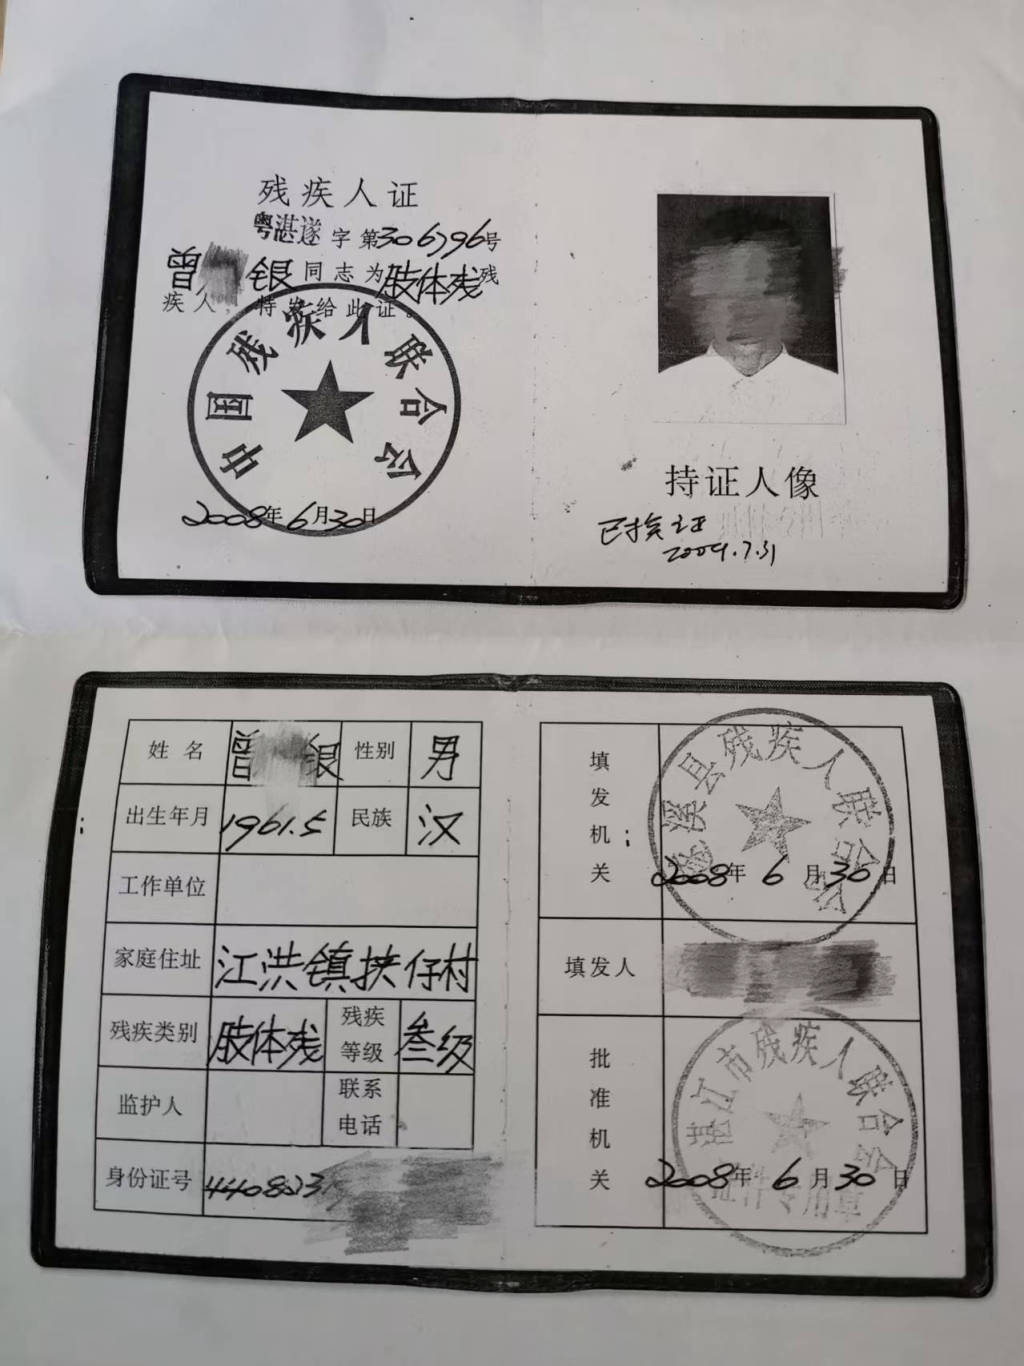 残疾人证
粤湛遂字第306796号
曾 银同志为肢体残残
疾人，特发给此证。
中国残疾人联合会
2008年6月30日
持证人像
已换证
2009.7.31
姓名 曾 银 性别 男
出生年月 1961.5 民族 汉
工作单位
家庭住址 江洪镇扶仔村
残疾类别 肢体残 残疾等级 叁级
监护人 联系电话
身份证号 440823
填发机关
遂溪县残疾人联合会
2008年6月30日
填发人
批准机关
湛江市残疾人联合会
2008年6月30日
证件专用章